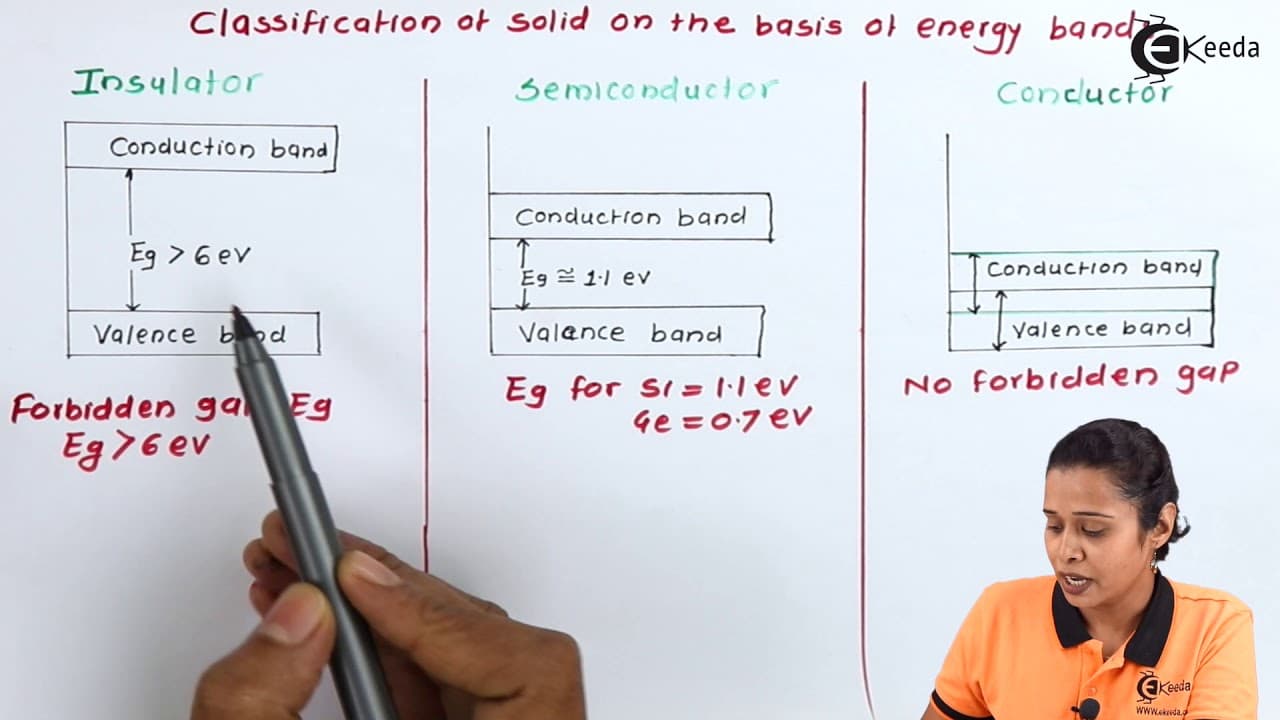 Classification of solid on the basis of energy band
EKeeda
Insulator
Conduction band
Eg > 6 ev
Valence band
Forbidden gap Eg
Eg > 6 ev
Semiconductor
Conduction band
Eg ≅ 1.1 ev
Valence band
Eg for Si = 1.1 ev
Ge = 0.7 ev
Conductor
Conduction band
Valence band
No forbidden gap
EKeeda